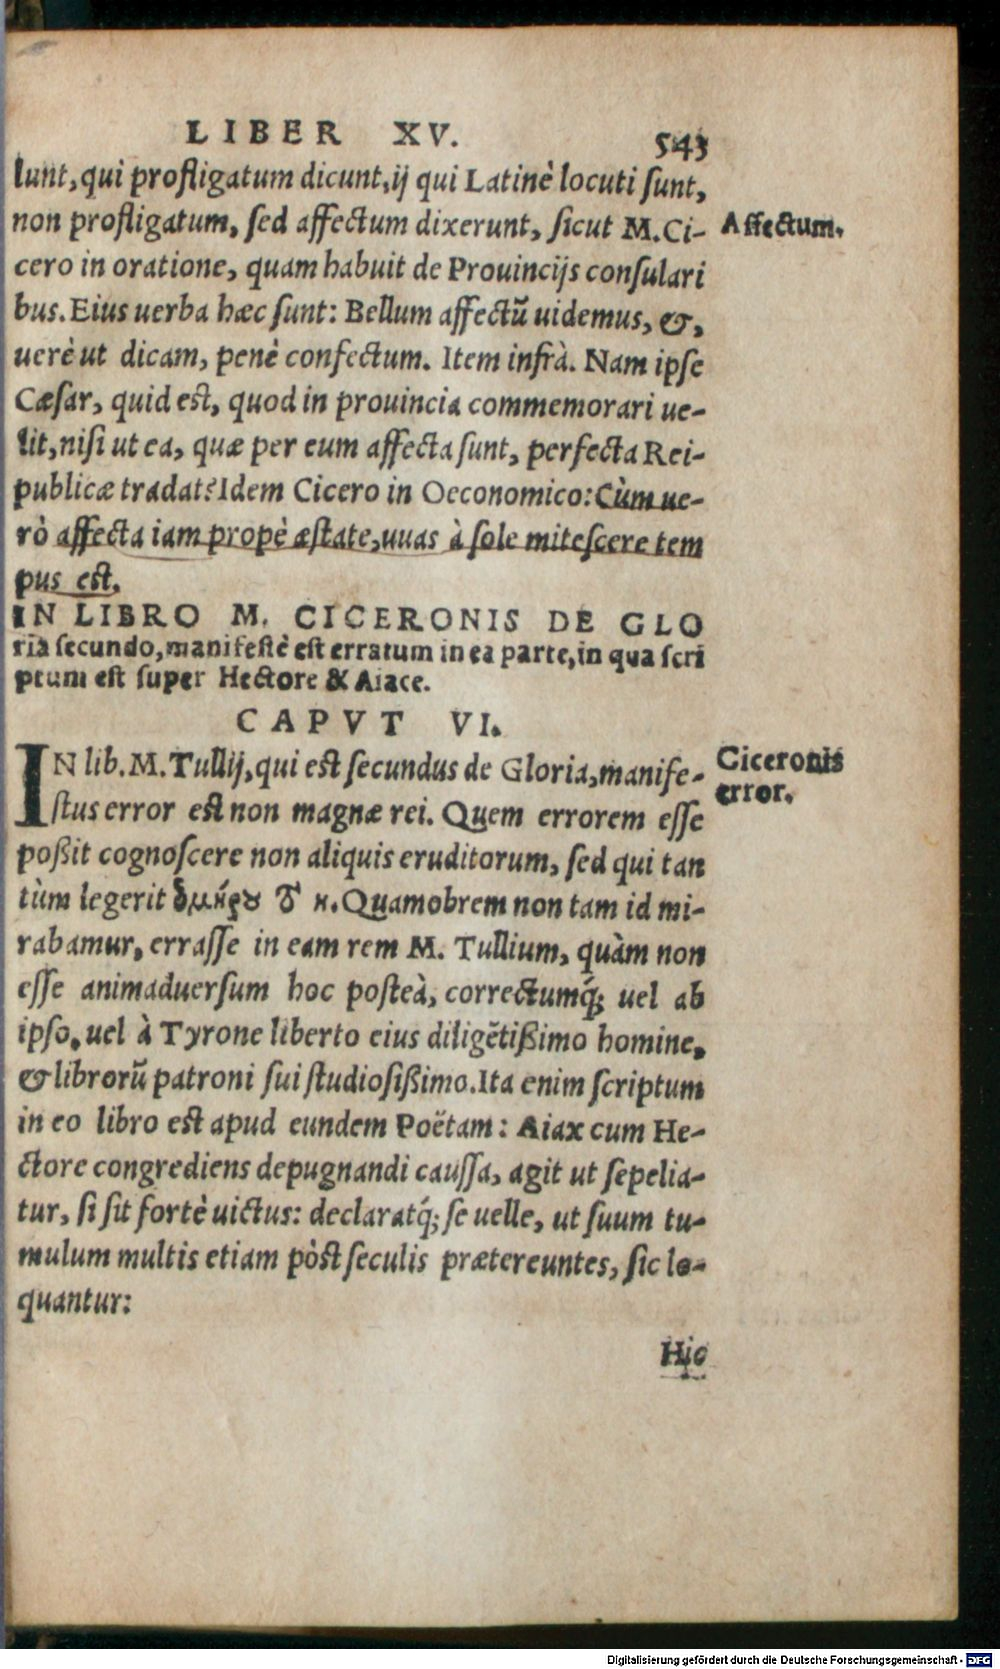 LIBER XV. 543
lunt, qui profligatum dicunt, ij qui Latinè locuti sunt,
non profligatum, sed affectum dixerunt, sicut M. Ci-
Affectum.
cero in oratione, quam habuit de Prouincijs consulari
bus. Eius uerba hæc sunt: Bellum affectũ uidemus, &,
uerè ut dicam, penè confectum. Item infrà. Nam ipse
Cæsar, quid est, quod in prouincia commemorari ue-
lit, nisi ut ea, quæ per eum affecta sunt, perfecta Rei-
publicæ tradat? Idem Cicero in Oeconomico: Cùm ue-
rò affecta iam propè æstate, uuas à sole mitescere tem
pus est.
IN LIBRO M. CICERONIS DE GLO
ria secundo, manifestè est erratum in ea parte, in qua scri
ptum est super Hectore & Aiace.
CAPVT VI.
IN lib. M. Tullij, qui est secundus de Gloria, manife-
Ciceronis
error.
stus error est non magnæ rei. Quem errorem esse
poßit cognoscere non aliquis eruditorum, sed qui tan
tùm legerit ὁμήρου τ η. Quamobrem non tam id mi-
rabamur, errasse in eam rem M. Tullium, quàm non
esse animaduersum hoc posteà, correctumq́; uel ab
ipso, uel à Tyrone liberto eius diligẽtißimo homine,
& librorũ patroni sui studiosißimo. Ita enim scriptum
in eo libro est apud eundem Poëtam: Aiax cum He-
ctore congrediens depugnandi caussa, agit ut sepelia-
tur, si sit fortè uictus: declaratq́; se uelle, ut suum tu-
mulum multis etiam pòst seculis prætereuntes, sic lo-
quantur:
Hic
Digitalisierung gefördert durch die Deutsche Forschungsgemeinschaft - DFG